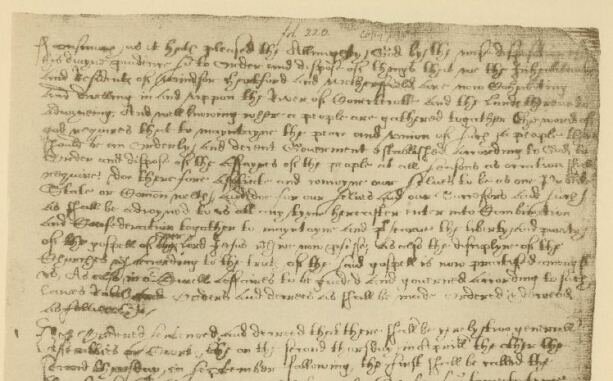 fol. 220. Copy
as it hath pleased the Allmighty God by the wise
his diuyne pruidence so to Order and dispose of things that we the
and Residents of Windsor Harteford and Wethersfield are now Cohabiting
and dwelling in and vppon the River of Conectecotte and the Lands thereunto
adioyneing; And well knowing where a people are gathered together the word of
god requires that to mayntayne the peace and vnion of such a people there
should be an Orderly and decent Gouerment established according to God, to
Order and dispose of the affayres of the people at all seasons as occation shall
require; doe therefore assotiate and conioyne our selues to be as one Publike
State or Comonwelth; and doe, for our selues and our Successors and such
as shall be adioyned to vs att any tyme hereafter, enter into Combination
and Confederation together, to mayntayne and preserue the liberty and purity
of the gospell of our Lord Jesus wch we now professe, as also the disciplyne of the
Churches wch according to the truth of the said gospell is now practised amongst
vs; As also in or Ciuell Affaires to be guided and gouerned according to such
Lawes Rules Orders and decrees as shall be made Ordered & decreed
as followeth
It is Ordered sentenced and decreed that there shall be yerely two generall
Assemblies or Courts, the on the second thursday in Aprill the other the
second thursday in September following, the first shall be called the